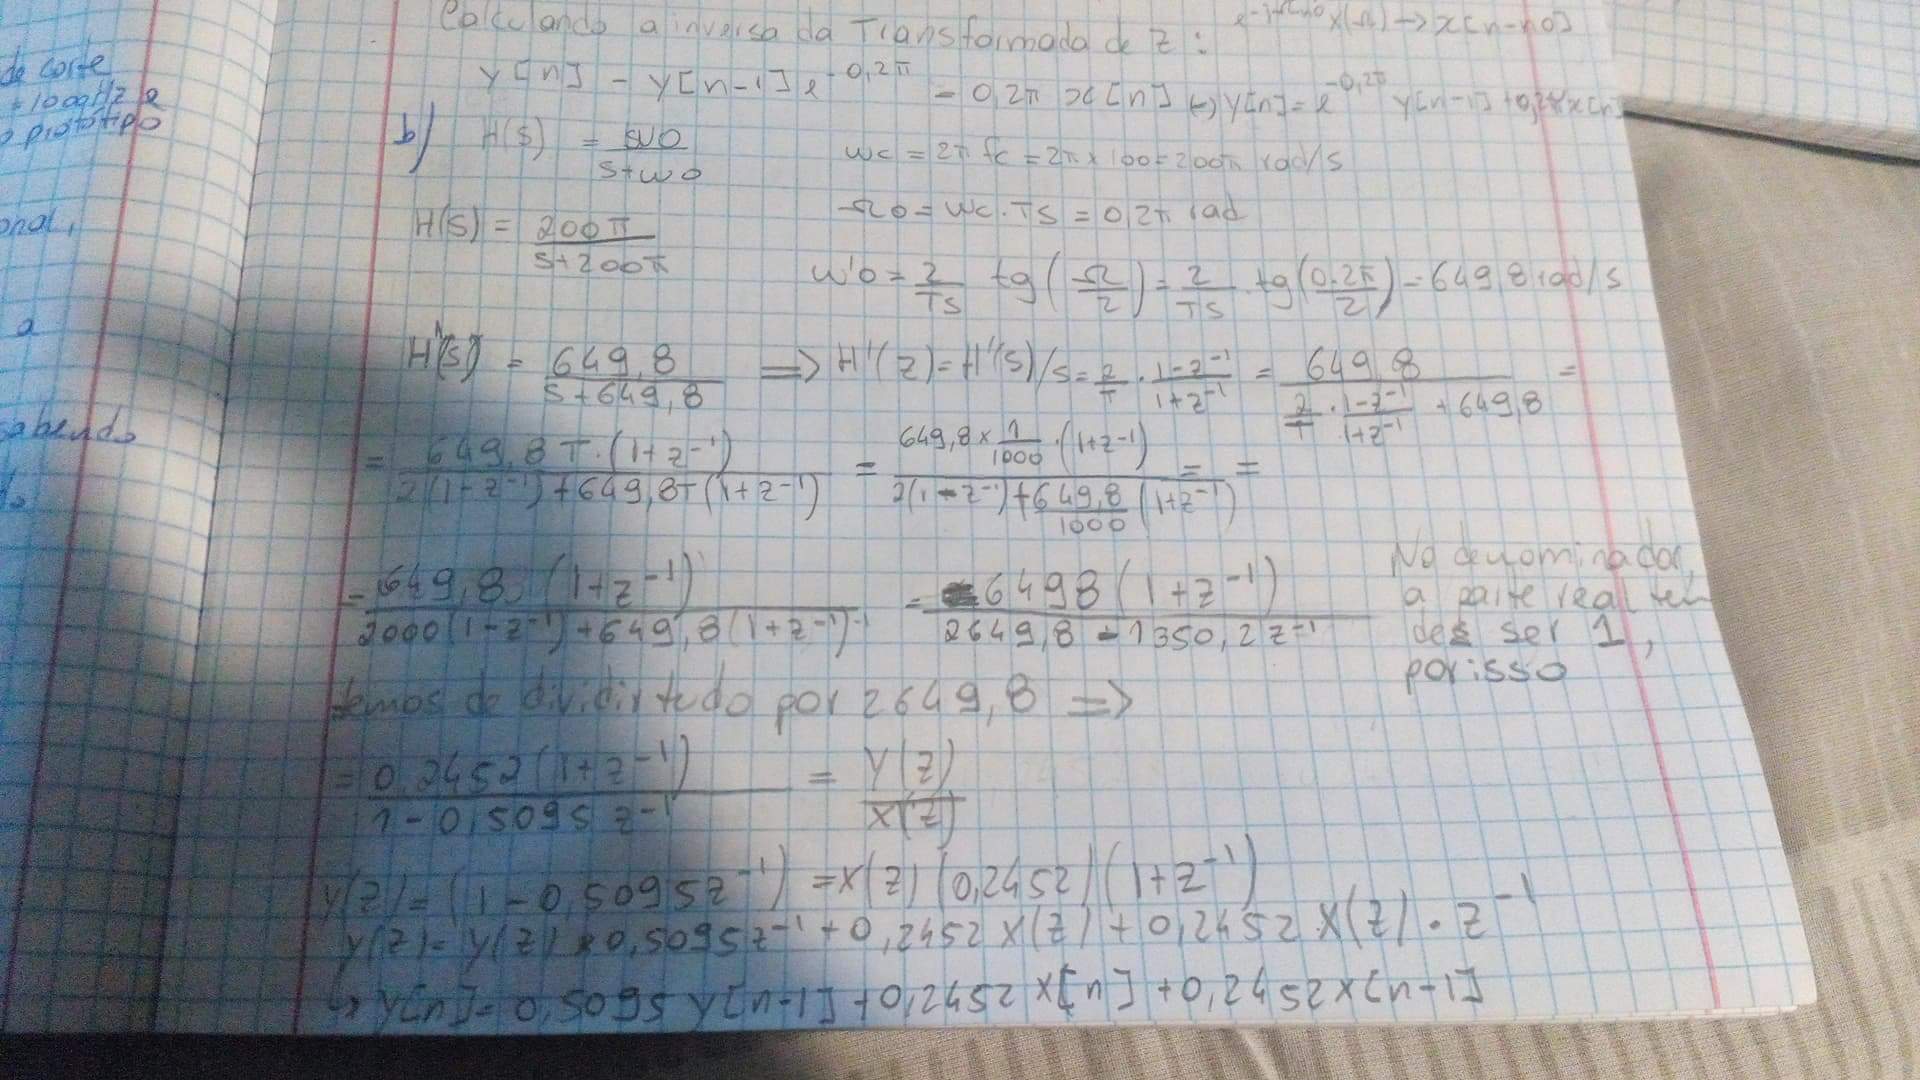 Calculando a inversa da Transformada de Z : e^-jΩn0 X(Ω) → x[n-n0]
y[n] - y[n-1] e^-0,2π = 0,2π x[n] ↔ y[n] = e^-0,2π y[n-1] + 0,2π x[n]
de corte
= 100 Hz e
o protótipo
b) H(s) = w0/(s+w0) wc = 2π fc = 2π x 100 = 200π rad/s
H(s) = 200π/(s+200π) Ω0 = wc . Ts = 0,2π rad
onal,
w'0 = 2/Ts tg(Ω/2) = 2/Ts . tg(0.2π/2) = 649,8 rad/s
a
H'(s) = 649,8/(s+649,8) => H'(z) = H'(s)/s = 2/T . (1-z^-1)/(1+z^-1) = 649,8/(2/T . (1-z^-1)/(1+z^-1) + 649,8) =
sabendo
= 649,8 T . (1+z^-1)/(2(1-z^-1) + 649,8T(1+z^-1)) = 649,8 x 1/1000 . (1+z^-1)/(2(1-z^-1) + 649,8/1000 (1+z^-1)) = =
= 649,8 (1+z^-1)/(2000(1-z^-1) + 649,8(1+z^-1)) = 6498(1+z^-1)/(2649,8 - 1350,2z^-1)
No denominador,
a parte real tem
de ser 1,
por isso
temos de dividir tudo por 2649,8 =>
= 0,2452(1+z^-1)/(1-0,5095z^-1) = Y(z)/X(z)
Y(z) = (1-0,5095z^-1) = X(z)(0,2452)(1+z^-1)
Y(z) = Y(z) x 0,5095z^-1 + 0,2452 X(z) + 0,2452 X(z) . z^-1
→ y[n] = 0,5095 y[n-1] + 0,2452 x[n] + 0,2452 x[n-1]